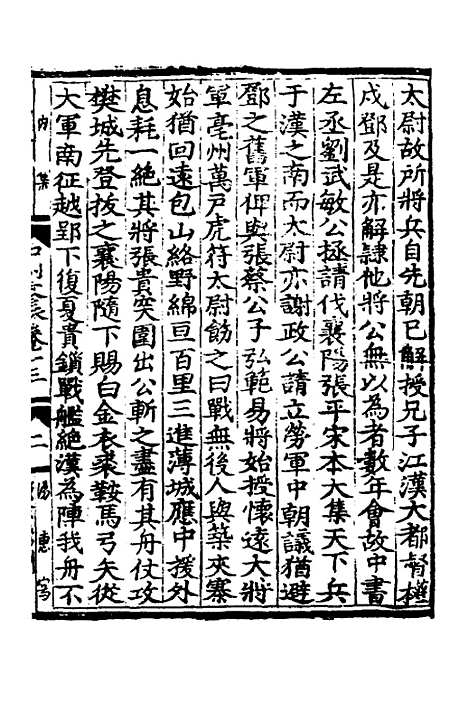 太尉故所將兵自先朝已解授兄子江漢大都督權
戍鄧及是亦解隷他將公無以為者數年會故中書
左丞劉武敏公拯請伐襄陽張平宋本大集天下兵
于漢之南而太尉亦謝政公請立勞軍中朝議猶避
鄧之舊軍俾與張蔡公子弘範易將始授懷遠大將
軍亳州萬戸虎符太尉飭之曰戰無後人與築夾寨
始猶回遠包山絡野綿亘百里三進薄城應中援外
息耗一絶其將張貴突圍出公斬之盡有其舟仗攻
樊城先登拔之襄陽隨下賜白金衣裘鞍馬弓矢從
大軍南征越郢下復夏貴鎖戰艦絶漢為陣我舟不
内集
卷十三
二
惠寫